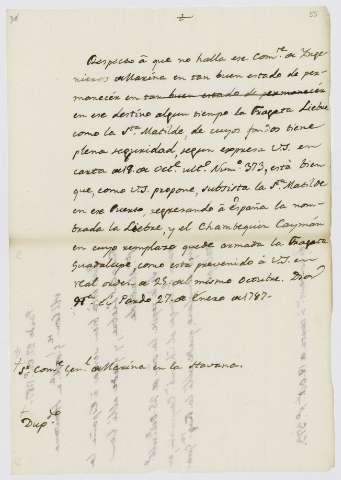 53
Respecto á que no halla ese Com.te de Inge-
nieros de Marina en tan buen estado de per-
manecér en tan buen estado de permanecér
en ese destino algun tiempo la Fragata Liebre
como la S.ta Matilde, de cuyos fondos tiene
plena seguridad, segun expresa V.S. en
carta de 18. de Oct.e ult.o Num.o 373, está bien
que, como V.S. propone, subsista la S.ta Matilde
en ese Puerto, regresando á España la nom-
brada la Liebre, y el Chambequin Caymán
en cuyo remplazo quede armada la Fragata
Guadalupe, como está prevenido á V.S. en
real orden de 25 del mismo Octubre. Dios
&.a El Pardo 27. de Enero de 1787.
S.or Com.te Gen.l de Marina en la Havana.
Dup.do